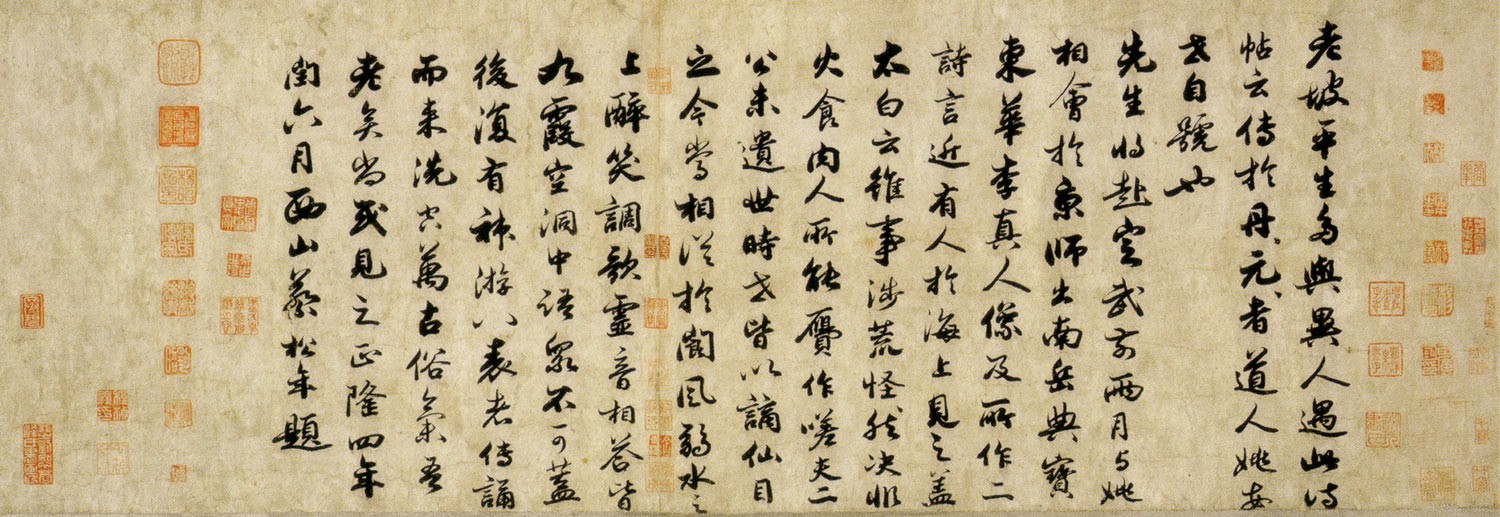 老坡平生多與異人遇此詩
帖云傳於丹元者道人姚安
世自號也
先生將赴定武前兩月與姚
相會於京師出南岳典寶
東華李真人像及所作二
詩言近有人於海上見之蓋
太白云雖事涉荒怪然決非
火食肉人所能贋作嗟夫二
公未遺世時世皆以謫仙目
之今當相從於閬風弱水之
上醉笑調歌靈音相答皆
九霞空洞中語不可蓋
後復有神游八表者傳誦
而來洗空萬古俗氣吾
老矣尚或見之正隆四年
閏六月西山蔡松年題